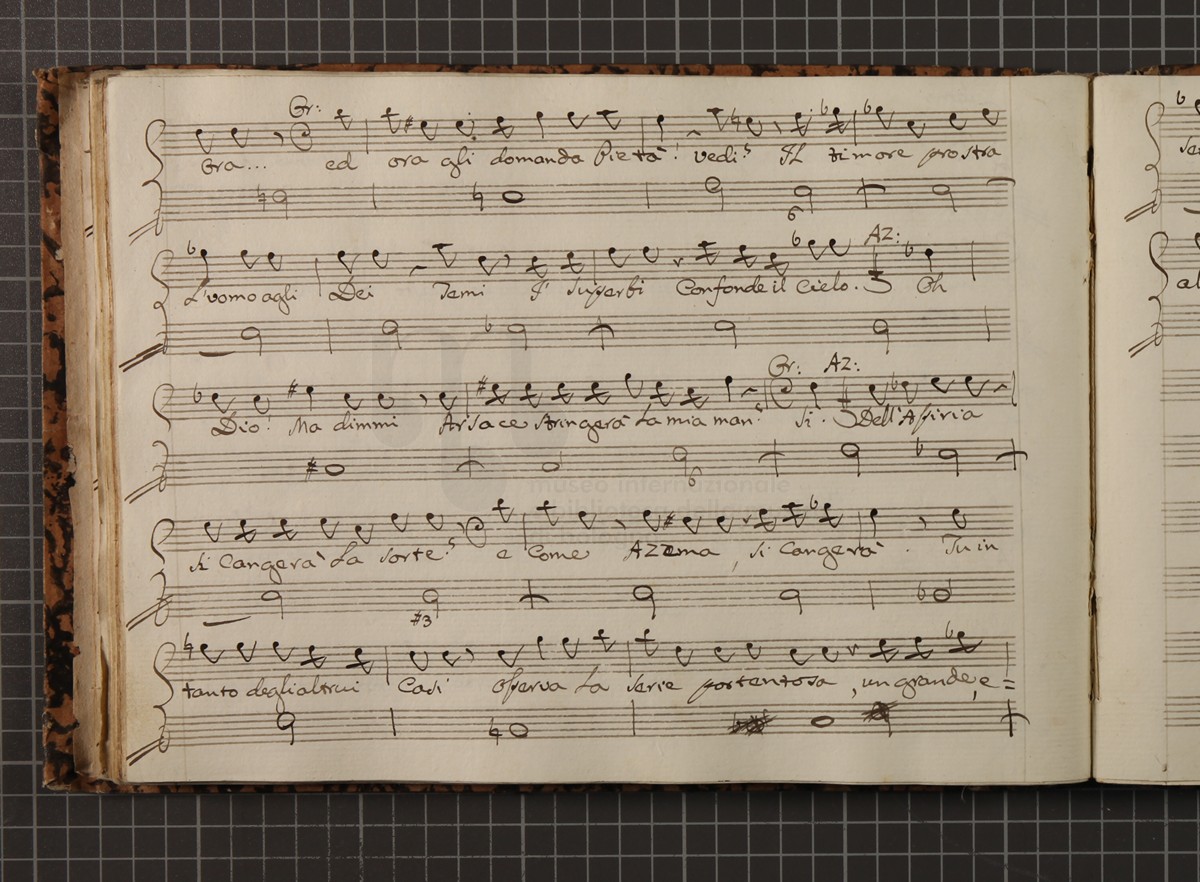 Gr:
Ora... ed ora agli domanda Pietà! vedi? Il timore prostra
6
Az:
L'uomo agli Dei Temi I' Superbi Confonde il Cielo. Oh
Gr: Az:
Dio! Ma dimmi Arsace stringerà La mia man? Si. Dell'Assiria
6
museo internazionale
si Cangerà La sorte? e Come Azzema, si Cangerà. Tu in
#3
tanto degli altrui Casi Osserva La serie portentosa, un grande, e =